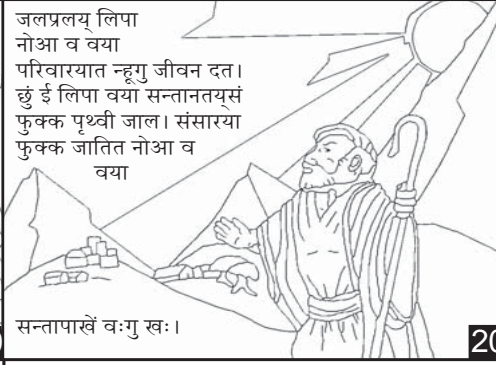 जलप्रलय् लिपा
नोआ व वया
परिवारयात न्हूगु जीवन दत।
छुं ई लिपा वया सन्तानतय्‌सं
फुक्क पृथ्वी जाल। संसारया
फुक्क जातित नोआ व
वया
सन्तापाखें वःगु खः।
20